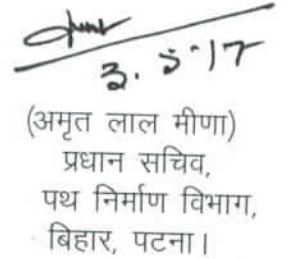 3. 5-17
(अमृत लाल मीणा)
प्रधान सचिव,
पथ निर्माण विभाग,
बिहार, पटना।